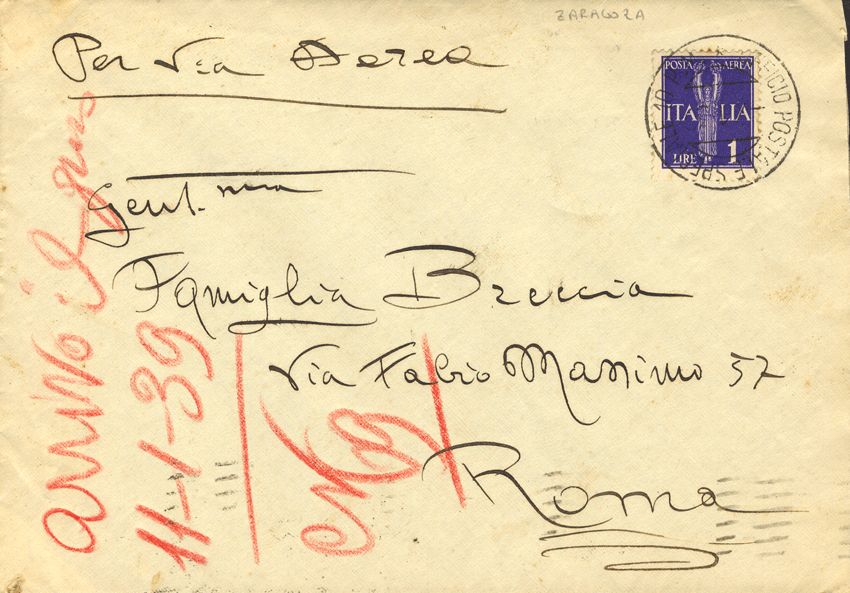 ZARAGOZA
Per Via Aerea
POSTA AEREA
ITALIA
LIRE 1
UFFICIO POSTALE SPECIALE 10
Gent.ma
Famiglia Breccia
Via Fabio Massimo 57
Roma
arrivo il giorno
11-1-39